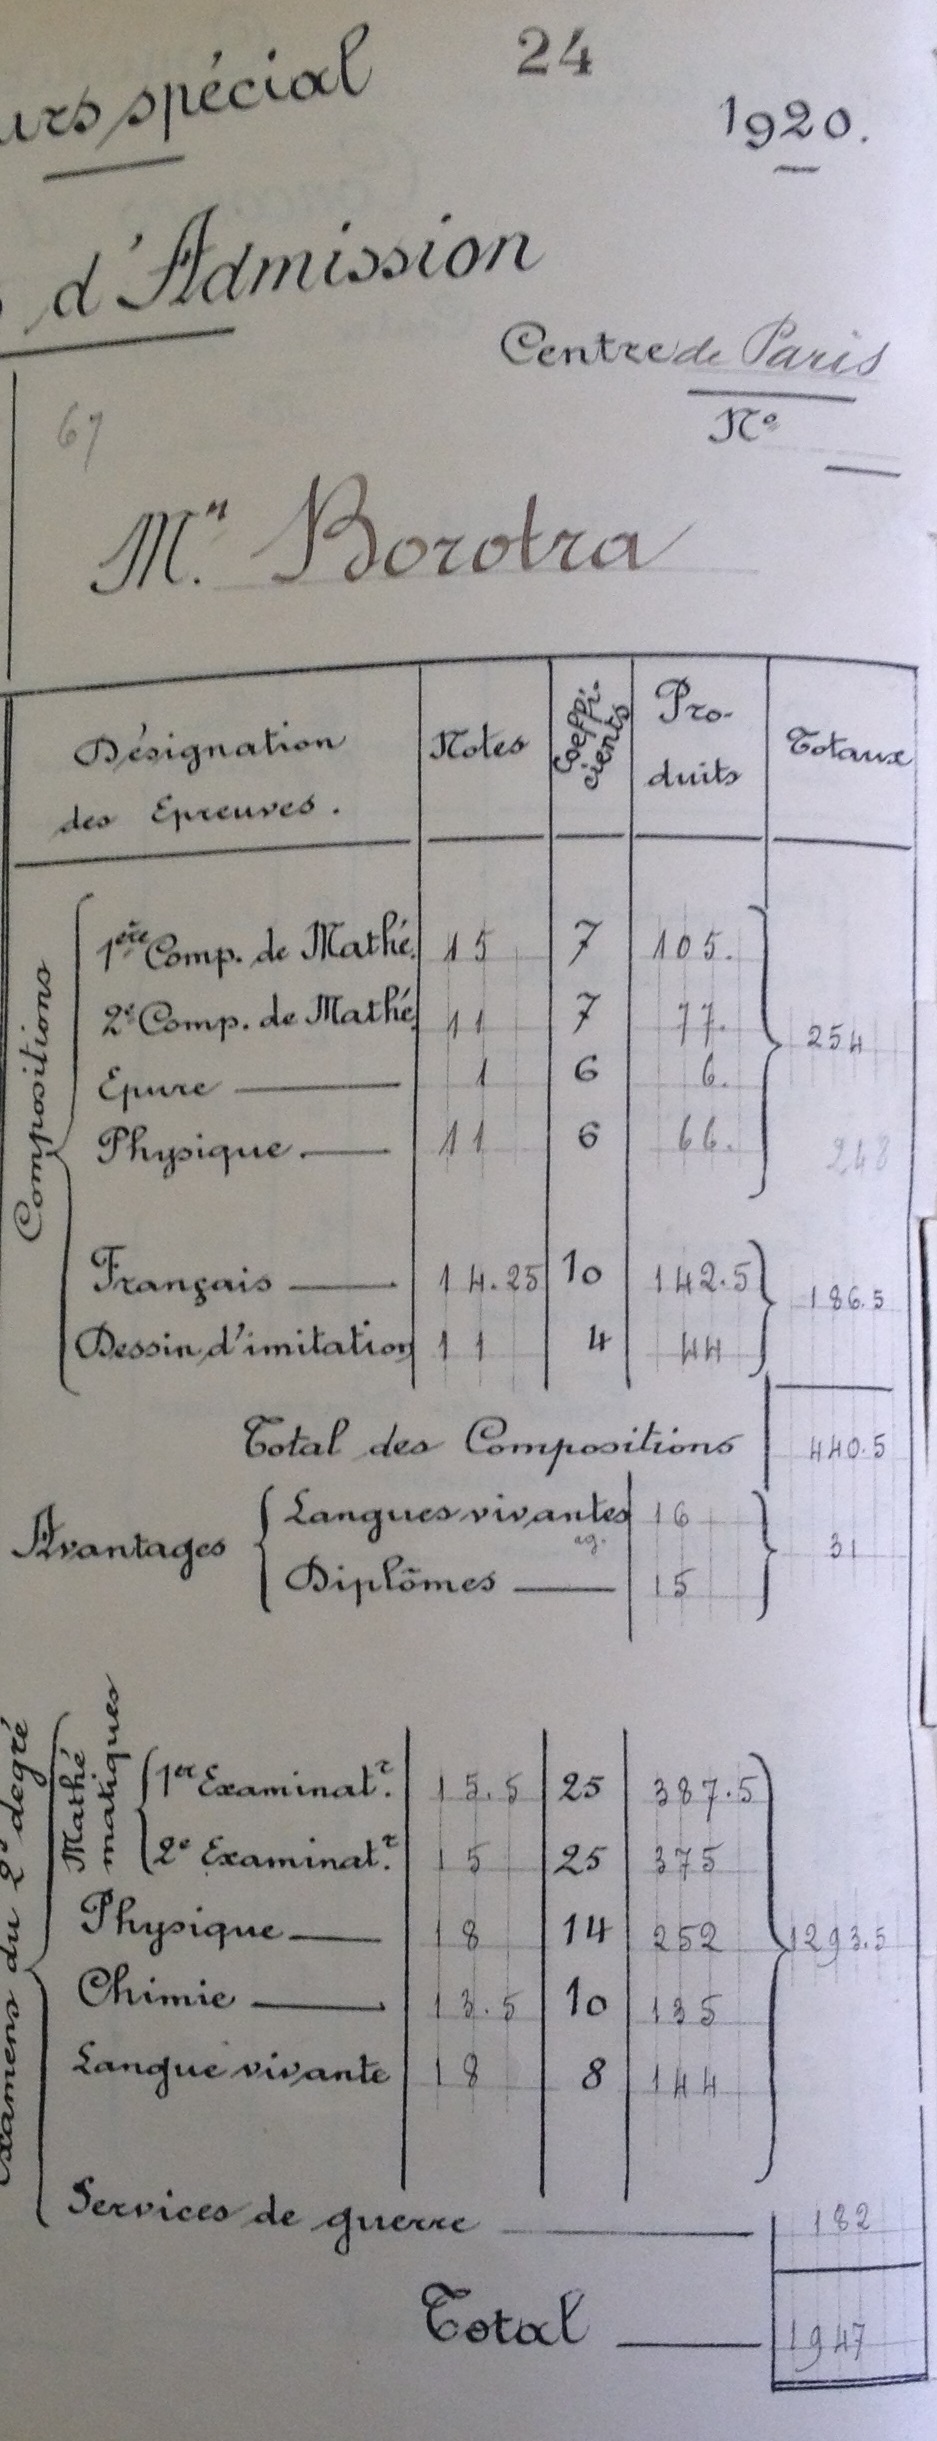 urs spécial
24
1920.
d'Admission
Centre de Paris
N°
67
M.r Borotra
Désignation des Epreuves. Notes Coeffi-cients Pro-duits Totaux
Compositions
1ère Comp. de Mathé. 15 7 105.
2e Comp. de Mathé. 11 7 77. 254
Epure 1 6 6.
Physique. 11 6 66. 248
Français 14.25 10 142.5 186.5
Dessin d'imitation 11 4 44
Total des Compositions 440.5
Avantages
Langues vivantes 16
ag.
31
Diplômes 15
Examens du 2e degré
Mathé matiques
1er Examinat.r 15.5 25 387.5
2e Examinat.r 15 25 375
Physique 18 14 252 1293.5
Chimie 13.5 10 135
Langue vivante 18 8 144
Services de guerre 182
Total 1947